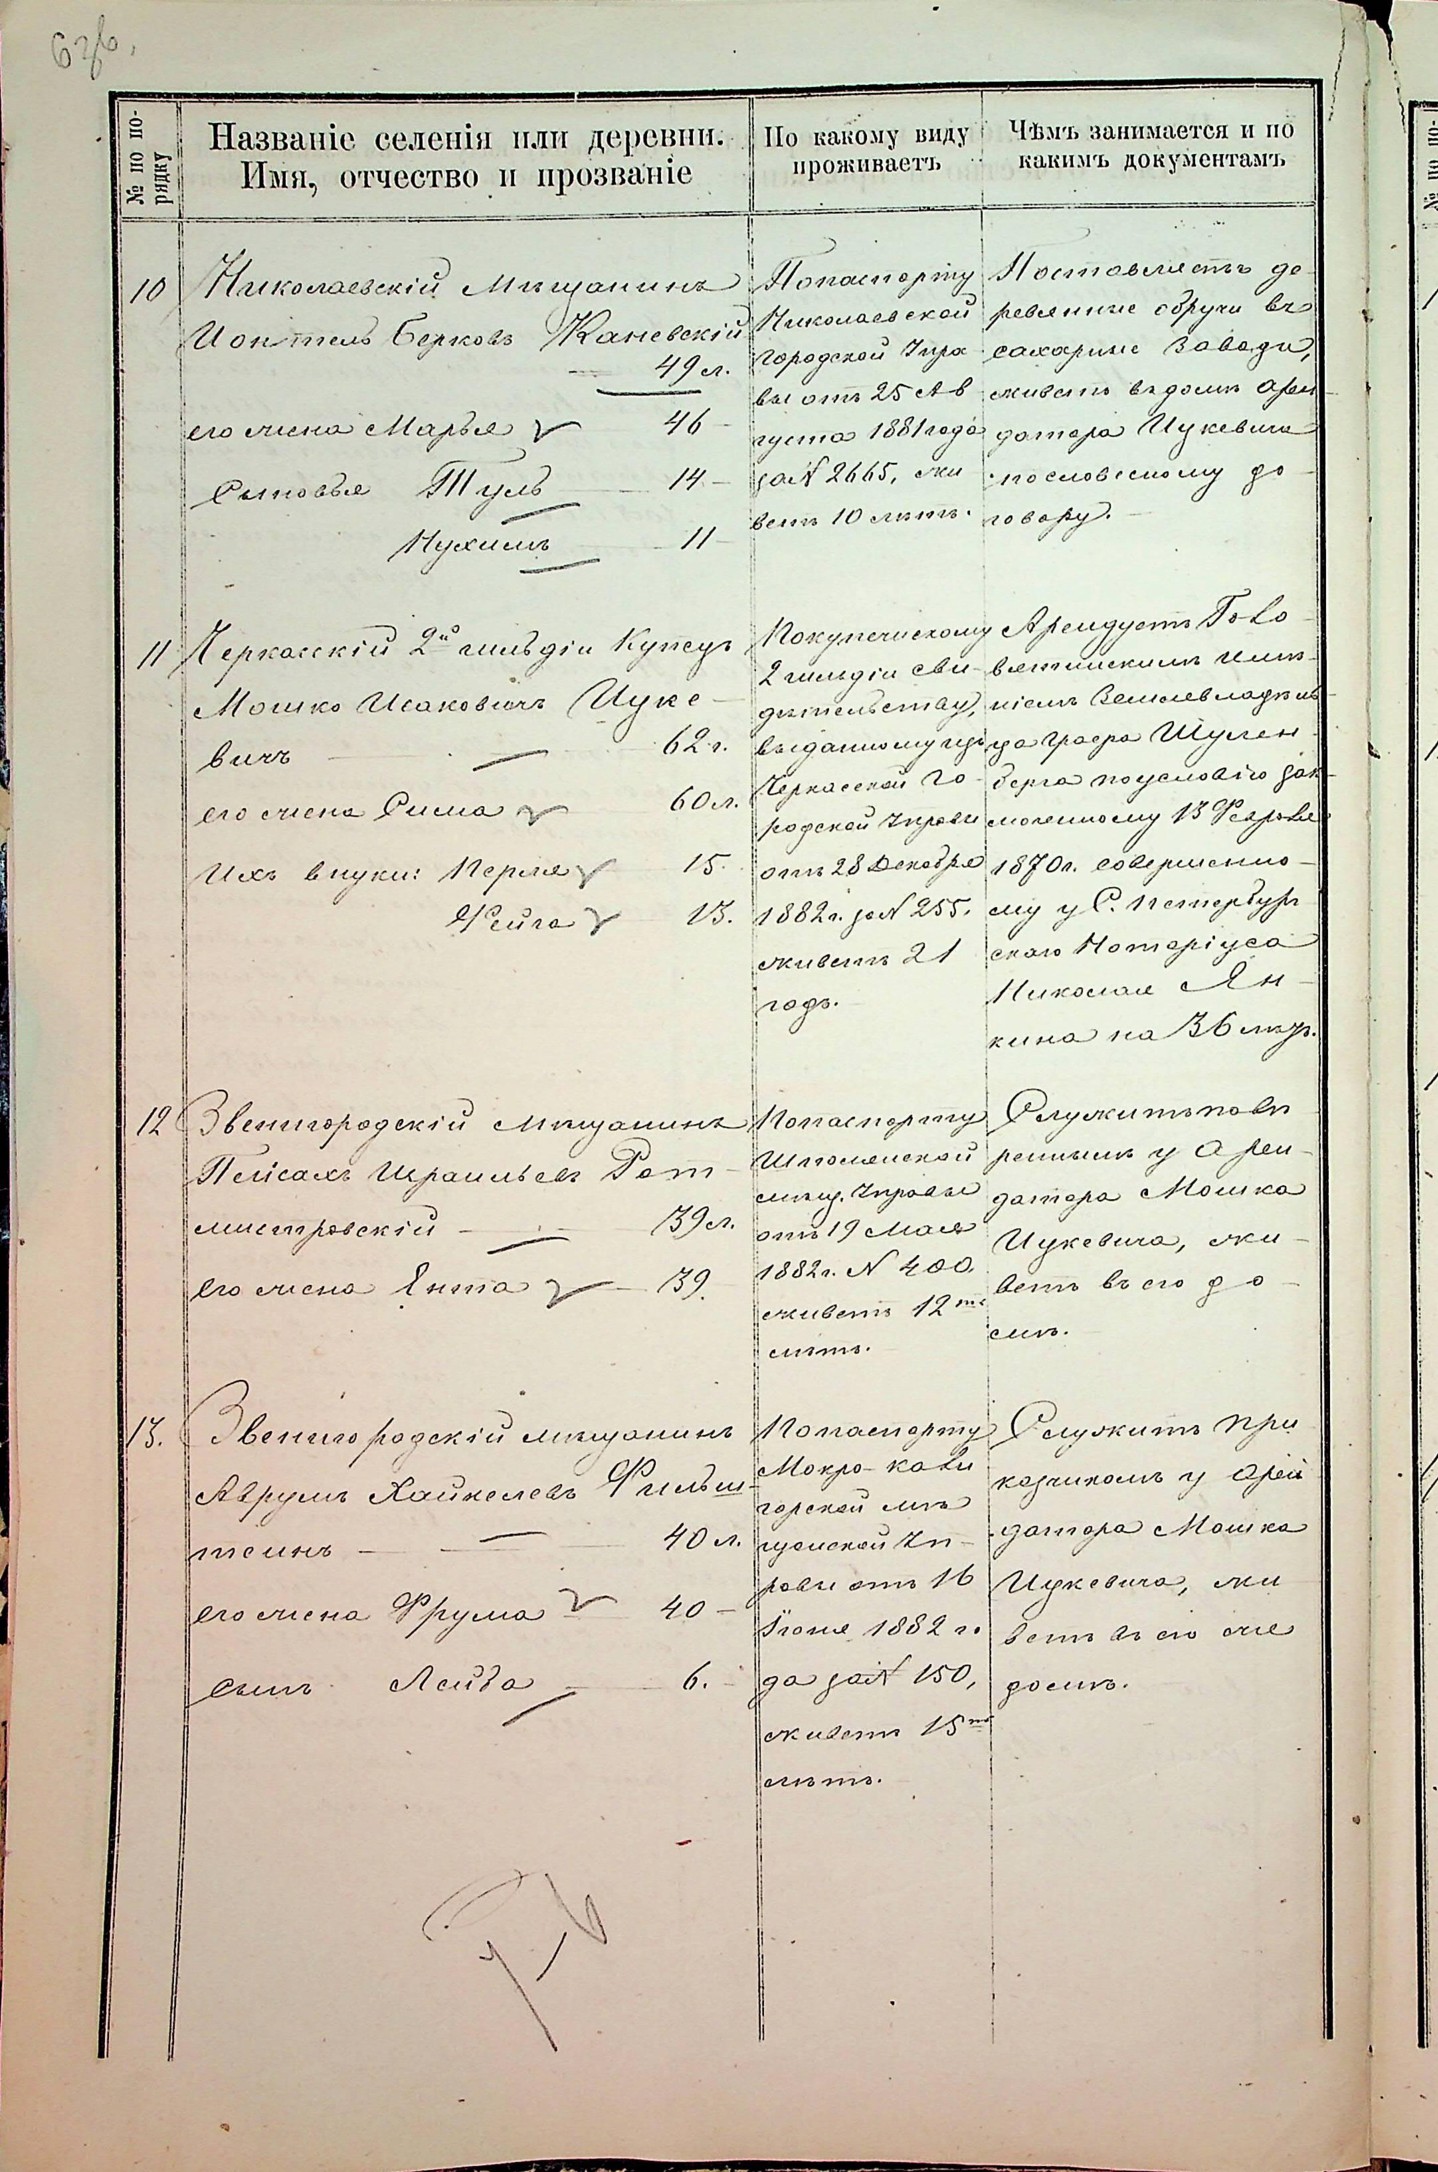 № по по-
рядку
Названіе селенія или деревни.
Имя, отчество и прозваніе
По какому виду
проживаетъ
Чѣмъ занимается и по
какимъ документамъ
10
Николаевскій Мѣщанинъ
Іонтель Берковъ Каневскій
49 л.
его жена Марья 46 -
Сыновья Шуль 14 -
Нухимъ 11 -
По паспорту
Николаевской
Городской Упра-
вы отъ 25 Ав-
густа 1881 года
за N 2665, жи-
ветъ 10 лѣтъ.
Поставляетъ де-
ревянные обручи въ
сахарные заводы,
живетъ въ домѣ Арен-
датора Цукевича
по словесному до-
говору. -
11
Черкасскій 2й гильдіи Купецъ
Мошко Исаковичъ Цуке-
вичъ - 62 г.
его жена Сима 60 л.
Ихъ внуки: Перля 15.
Фейга 13.
По купеческому
2 гильдіи сви-
дѣтельству,
выданному изъ
Черкасской Го-
родской Управы
отъ 28 Декабря
1882 г. за N 255.
живетъ 21
годъ.
Арендуетъ Гово-
вятинскимъ имѣ-
ніемъ Землевладѣль-
ца Графа Шулен-
берга по условію зак-
люченному 13 Февраля
1870 г. совершенно-
му у С. Петербург-
скаго Нотаріуса
Николая Ян-
кина на 36 лѣтъ.
12
Звенигородскій Мѣщанинъ
Пейсахъ Израильевъ Рот-
мистровскій - 39 л.
его жена Ента - 39.
По паспорту
Шполянской
мѣщ. Управы
отъ 19 Мая
1882 г. N 400.
живетъ 12ть
лѣтъ.
Служитъ повѣ-
реннымъ у Арен-
датора Мошка
Цукевича, жи-
ветъ въ его до-
мѣ.
13.
Звенигородскій мѣщанинъ
Аврумъ Хайкелевъ Фильш-
тейнъ - 40 л.
его жена Фрума 40 -
сынъ Лейба - 6.
По паспорту
Мокро-кали-
горской мѣ-
щанской Уп-
равы отъ 16
Іюня 1882 го-
да за N 150,
живетъ 15ть
лѣтъ.
Служитъ при-
казчикомъ у арен-
датора Мошка
Цукевича, жи-
ветъ въ его же
домѣ.